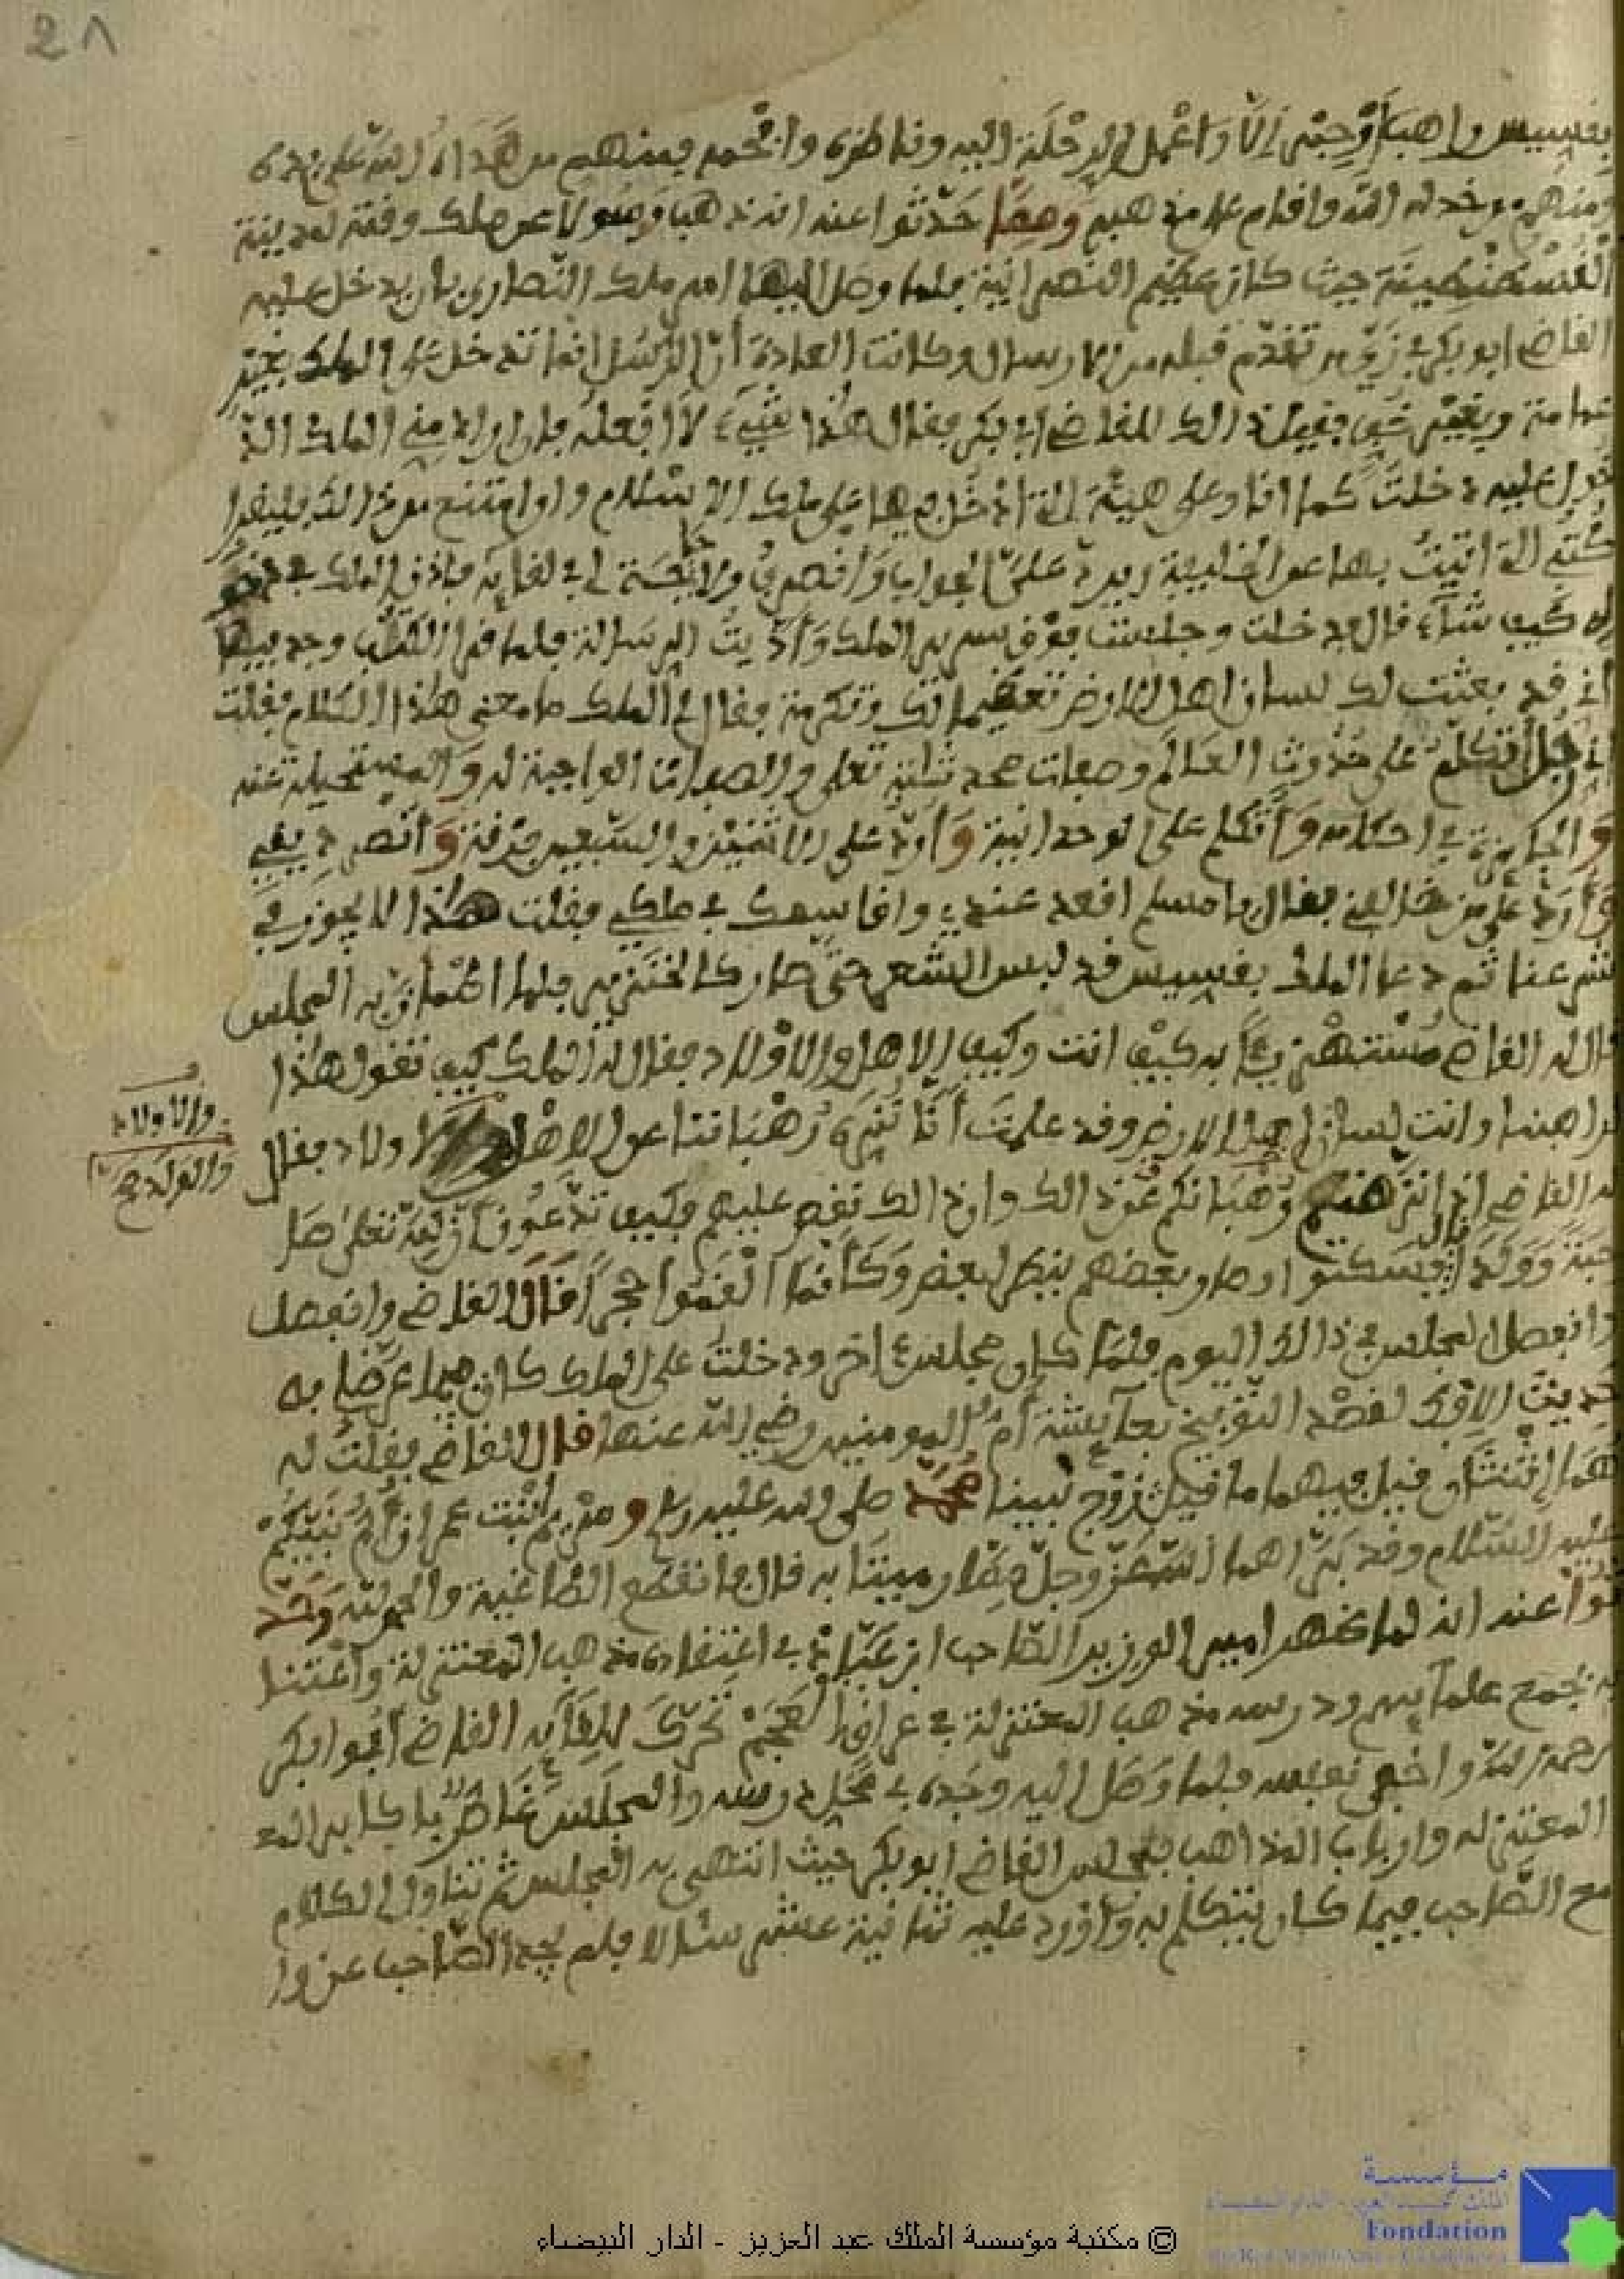 21
بقسيس راهب أو حبر إلا واعمل الرحلة إليه وناظره وأفحمه فمنهم من هداه الله على يده
ومنهم من خذله الله وأقام على مذهبه ومما حدثوا عنه أنه ذهب رسولا عن ملك وقته لمدينة
القسطنطينة حيث كان عظيم النصرانية فلما وصل إليها أمر ملك النصارى بأن يدخل عليه
القاضي أبو بكر في زي من تقدم قبله من الإرسال وكانت العادة أن الرسل إنما تدخل على الملك بغير
عمامة وبغير خف فقيل ذالك للقاضي أبي بكر فقال هذا شيء لا أفعله فإن أراد مني الملك الد
خول عليه دخلت كما أنا وعلى هيئة التي أدخل بها على ملك الإسلام وإن امتنع من ذالك فليقرأ
كتبي التي أتيت بها عن الخليفة ويرد علي الجواب وأنصرف ولا حاجة لي في لقائه فأذن الملك في دخو
له كيف شاء قال فدخلت وجلست فوق سرير الملك وأديت الرسالة فلما قرأ الكتب وجد فيها
أني قد بعثت لك لسان أهل الأرض تعظيما لك وتكرمة فقال لي الملك ما معنى هذا الكلام فقلت
أني رجل أتكلم على حدوث العالم وصفات محدثه تعلى والصفات الواجبة له والمستحيلة عنه
والجايزة في أحكامه وأتكلم على الوحدانية وأرد على الاثنين والسبعين فرقة وأنصر ديني
وأرد على من خالفني فقال يا مسلم اقعد عندي وأقاسمك في ملكي فقلت هذا لا يجوز في
شرعنا ثم دعا الملك بقسيس قد لبس الشعر حتى صار كالخنزير فلما اطمأن به المجلس
قال له القاضي مستهزيا به كيف أنت وكيف الأهل والأولاد فقال له الملك كيف تقول هذا
لراهبنا وأنت لسان أهل الأرض وقد علمت أنا ننزه رهباننا عن الأهل والأولاد فقال
والأولاد
والولد صح
له القاضي إذا نزهتم رهبانكم عن ذالك وإن ذالك نقص عليهم فكيف تدعون أن لله تعلى صا
حبة وولدا قال فسكتوا وصار بعضهم ينظر لبعض وكأنما ألقموا حجرا قال القاضي وانفصل
وانفصل المجلس في ذالك اليوم فلما كان مجلس آخر ودخلت على الملك كان فيما عرض به
حديث الإفك لقصد التوبيخ بعائشة أم المومنين رضي الله عنها قال القاضي فقلت له
هما اثنتان قيل فيهما ما قيل زوج نبينا محمد صلى الله عليه وسلم ومريم ابنت عمران أم نبيكم
عليه السلام وقد برأهما الله عز وجل مما رميتا به قال فانقطع الطاغية والحمد لله وحد
ثوا عنه أنه لما ظهر أمير الوزير الصاحب ابن عباد في اعتقاده مذهب المعتزلة واعتنا
به بجمع علمائهم ودرسه مذهب المعتزلة في عراق العجم تحرك للقائه القاضي أبو ابكر
رحمه الله وأخفى نفسه فلما وصل إليه وجده في محل درسه والمجلس غاص بأكابر المعـ
المعتزله وأرباب المذاهب فجلس القاضي أبو بكر حيث انتهى به المجلس ثم تناول الكلام
مع الصاحب فيما كان يتكلم به وأورد عليه ثمانية عشر سئالا فلم يجد الصاحب عن وا
مؤسسة
الملك عبد العزيز - الدار البيضاء
Fondation
© مكتبة مؤسسة الملك عبد العزيز - الدار البيضاء